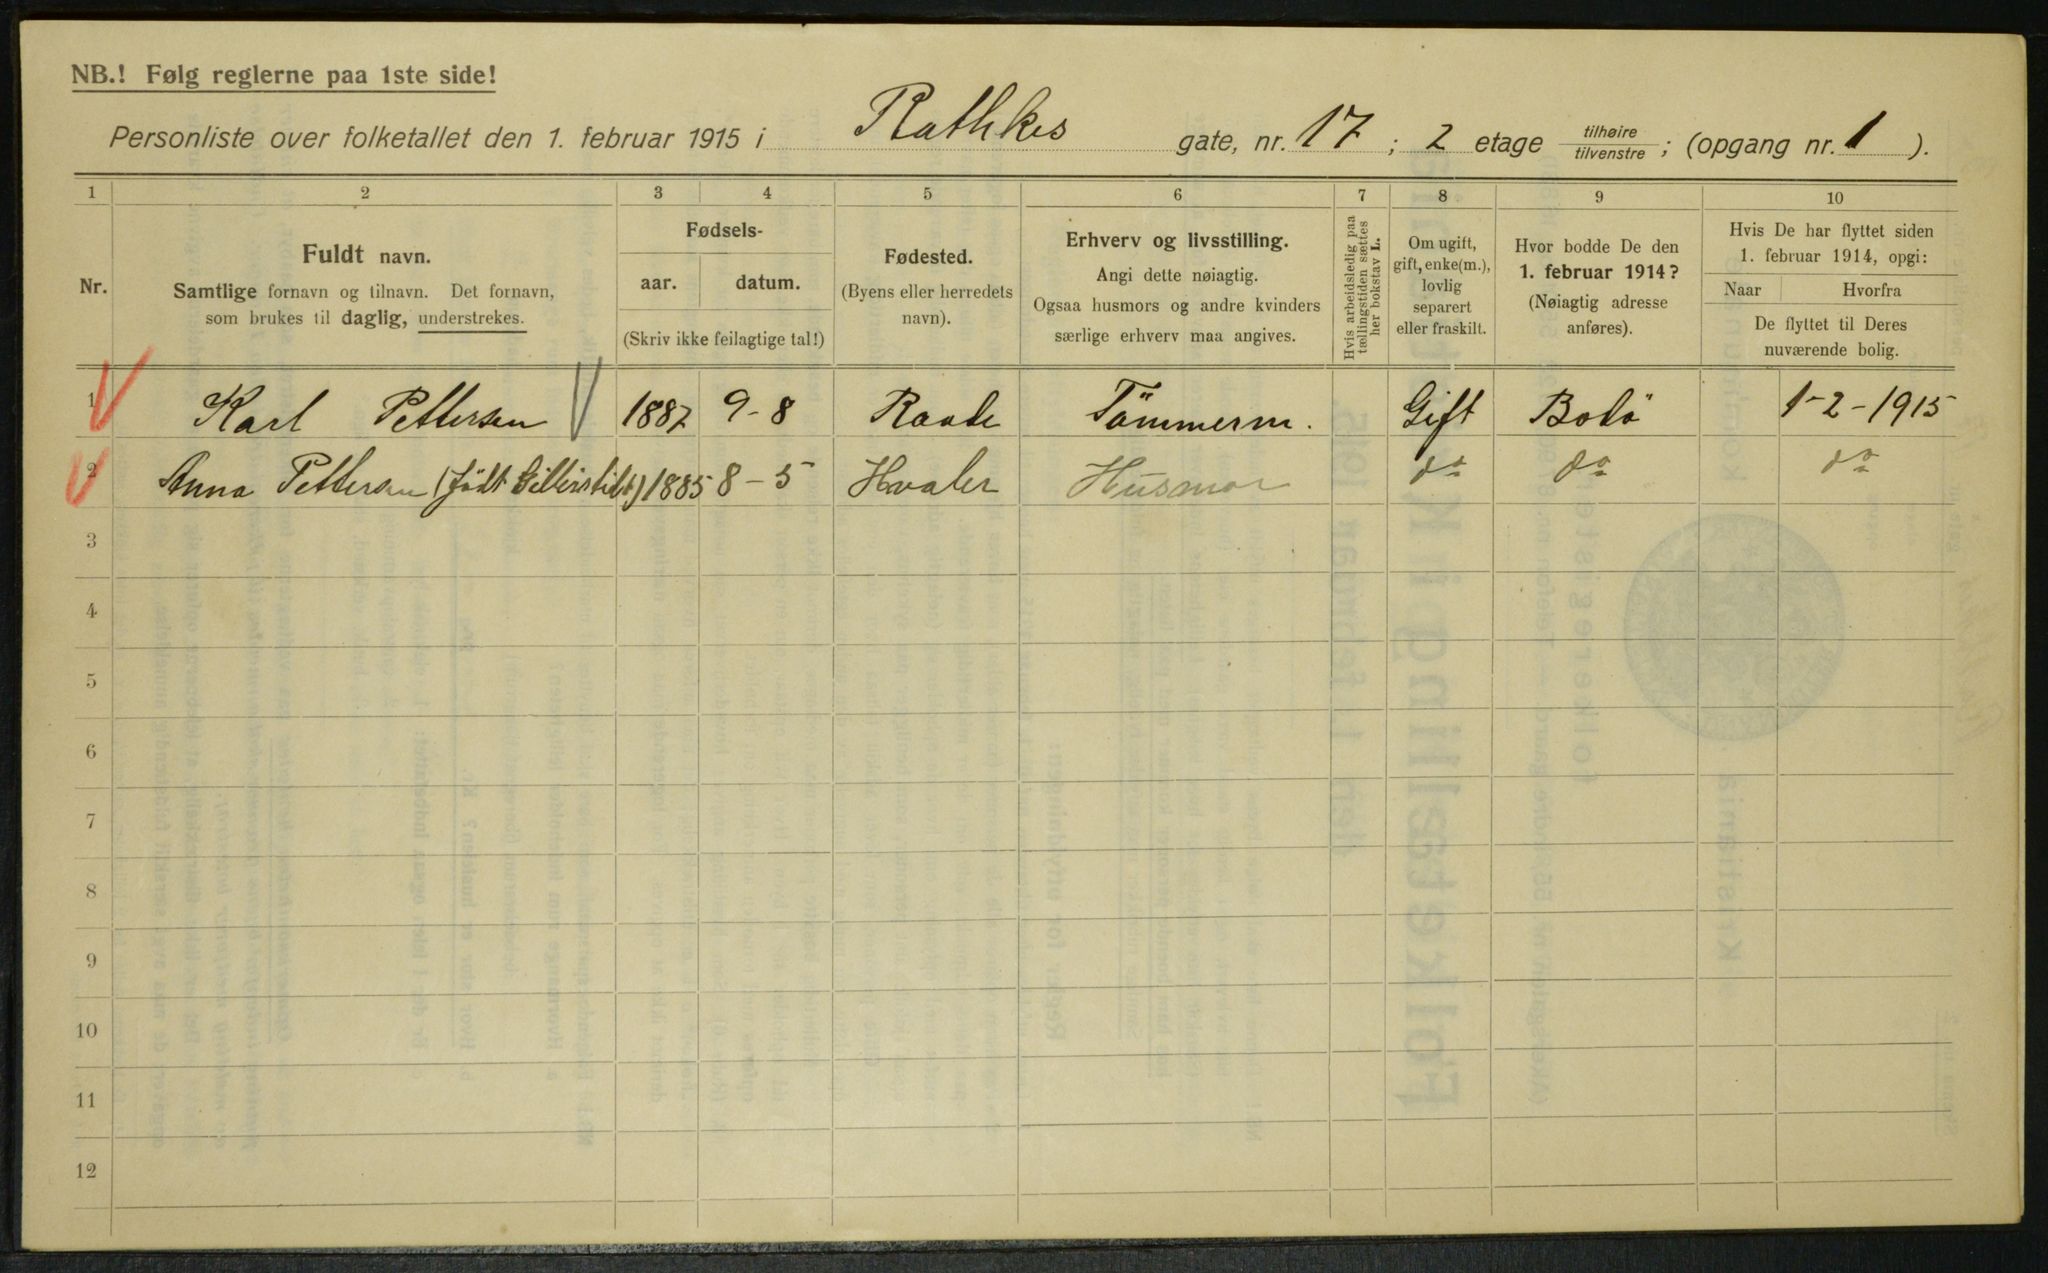 NB.! Følg reglerne paa 1ste side!
Personliste over folketallet den 1. februar 1915 i Rathkes gate, nr. 17; 2 etage tilhøire / tilvenstre; (opgang nr. 1).
1 2 3 4 5 6 7 8 9 10
Nr.
Fuldt navn.
Samtlige fornavn og tilnavn. Det fornavn,
som brukes til daglig, understrekes.
Fødsels-
aar. datum.
(Skriv ikke feilagtige tal!)
Fødested.
(Byens eller herredets
navn).
Erhverv og livsstilling.
Angi dette nøiagtig.
Ogsaa husmors og andre kvinders
særlige erhverv maa angives.
Hvis arbeidsledig paa
tællingstiden sættes
her bokstav L.
Om ugift,
gift, enke(m.),
lovlig
separert
eller fraskilt.
Hvor bodde De den
1. februar 1914?
(Nøiagtig adresse
anføres).
Hvis De har flyttet siden
1. februar 1914, opgi:
Naar Hvorfra
De flyttet til Deres
nuværende bolig.
1 Karl Pettersen 1887 9-8 Raade Tömmerm. Gift Bodö 1-2-1915
2 Anna Pettersen (født 1885 8-5 Hvaler Husmor do do do
3
4
5
6
7
8
9
10
11
12